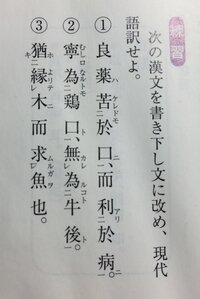 練習
次の漢文を書き下し文に改め、現代
語訳せよ。
①良薬ハ苦ケレドモ二於口一ニ、而利アリ二於病一ニ。
②寧ムシロ為なルトモ二鶏口一ト、無カレ為ルコト二牛後一ト。
③猶ホ縁よリテレ木ニ而求ムルガ魚ヲ也。